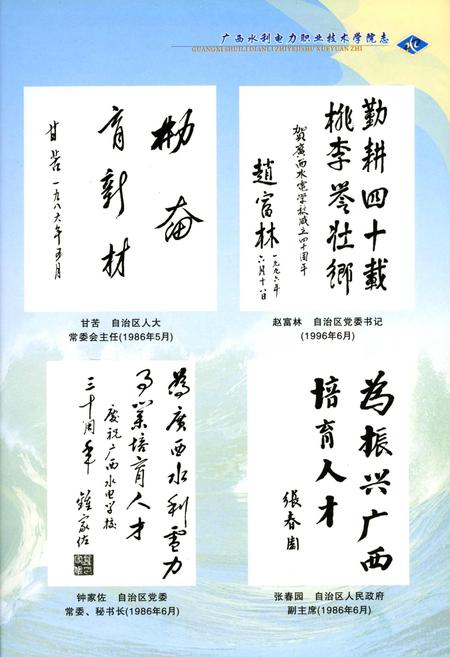 广西水利电力职业技术学院志
GUANGXI SHUILI DIANLI ZHIYE JISHU XUEYUAN ZHI
勤奋
育新材
甘苦 一九八六年五月
甘苦 自治区人大
常委会主任(1986年5月)
勤耕四十载
桃李誉壮鄉
贺廣西水電学校成立四十周年
趙富林
一九九六年
六月十八日
赵富林 自治区党委书记
(1996年6月)
為廣西水利電力
事業培育人才
慶祝广西水电学校
三十周年
鍾家佐
钟家佐 自治区党委
常委、秘书长(1986年6月)
为振兴广西
培育人才
張春园
张春园 自治区人民政府
副主席(1986年6月)